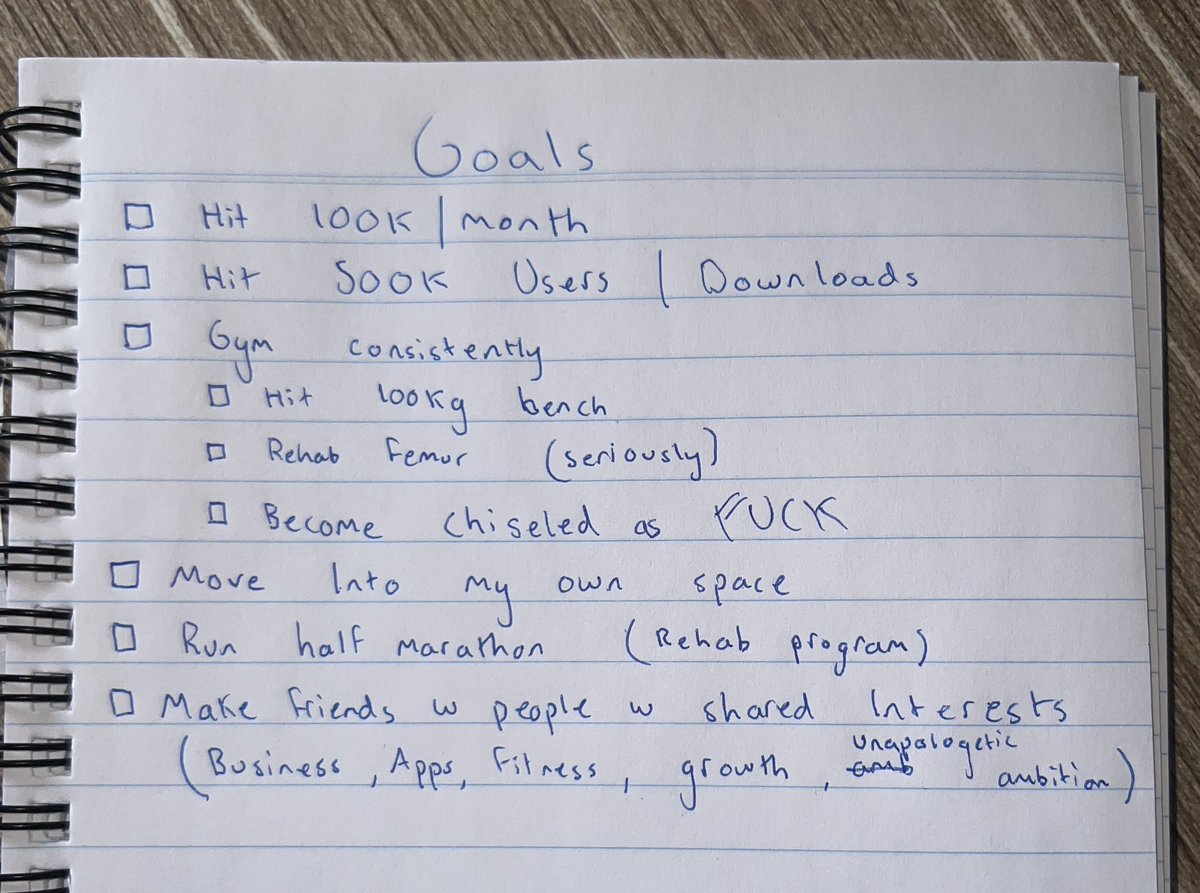 Goals
Hit 100K / month
Hit 500K Users / Downloads
Gym consistently
Hit 100Kg bench
Rehab Femur (seriously)
Become chiseled as FUCK
Move Into my own space
Run half marathon (Rehab program)
Make friends w people w shared Interests
(Business, Apps, Fitness, growth, unapologetic amb ambition)